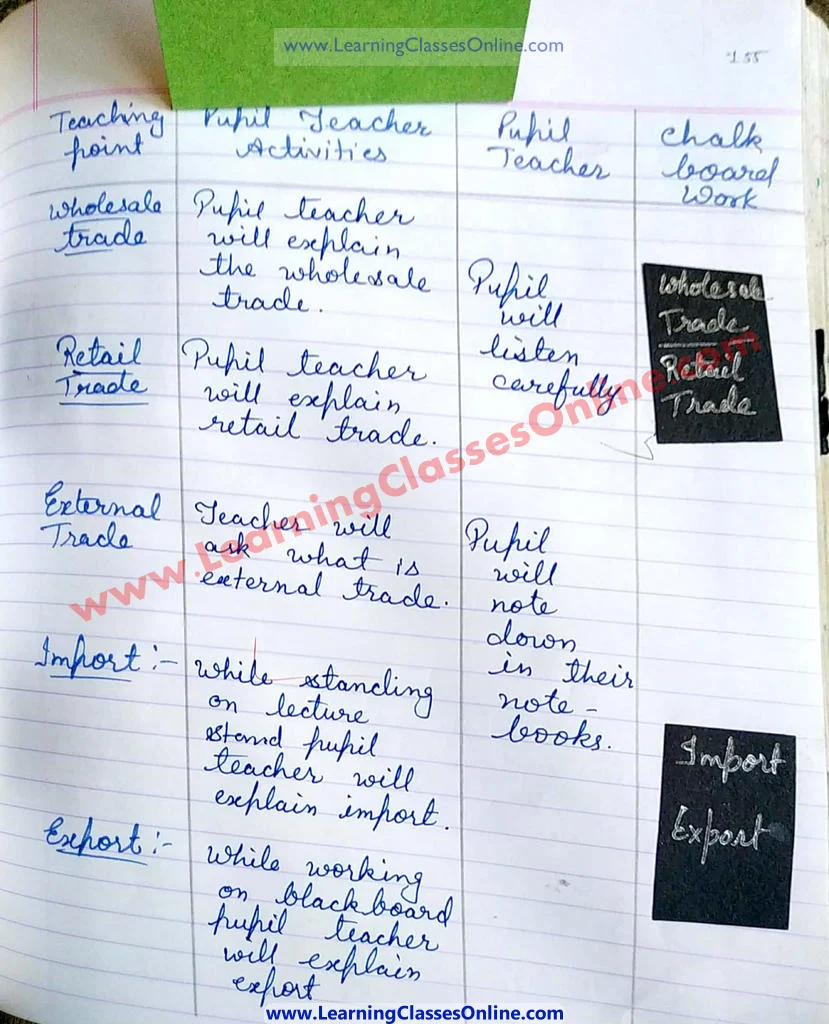 www.LearningClassesOnline.com
155
Teaching
point
Pupil Teacher
Activities
Pupil
Teacher
chalk
board
Work
Wholesale
trade
Pupil teacher
will explain
the wholesale
trade.
Pupil
will
listen
carefully
Wholesale
Trade
Retail
Trade
Retail
Trade
Pupil teacher
will explain
retail trade.
External
Trade
Teacher will
ask what is
external trade.
Pupil
will
note
down
in their
note-
books.
Import :-
While standing
on lecture
stand pupil
teacher will
explain import.
Import
Export
Export :-
While working
on blackboard
pupil teacher
will explain
export
www.LearningClassesOnline.com
www.LearningClassesOnline.com